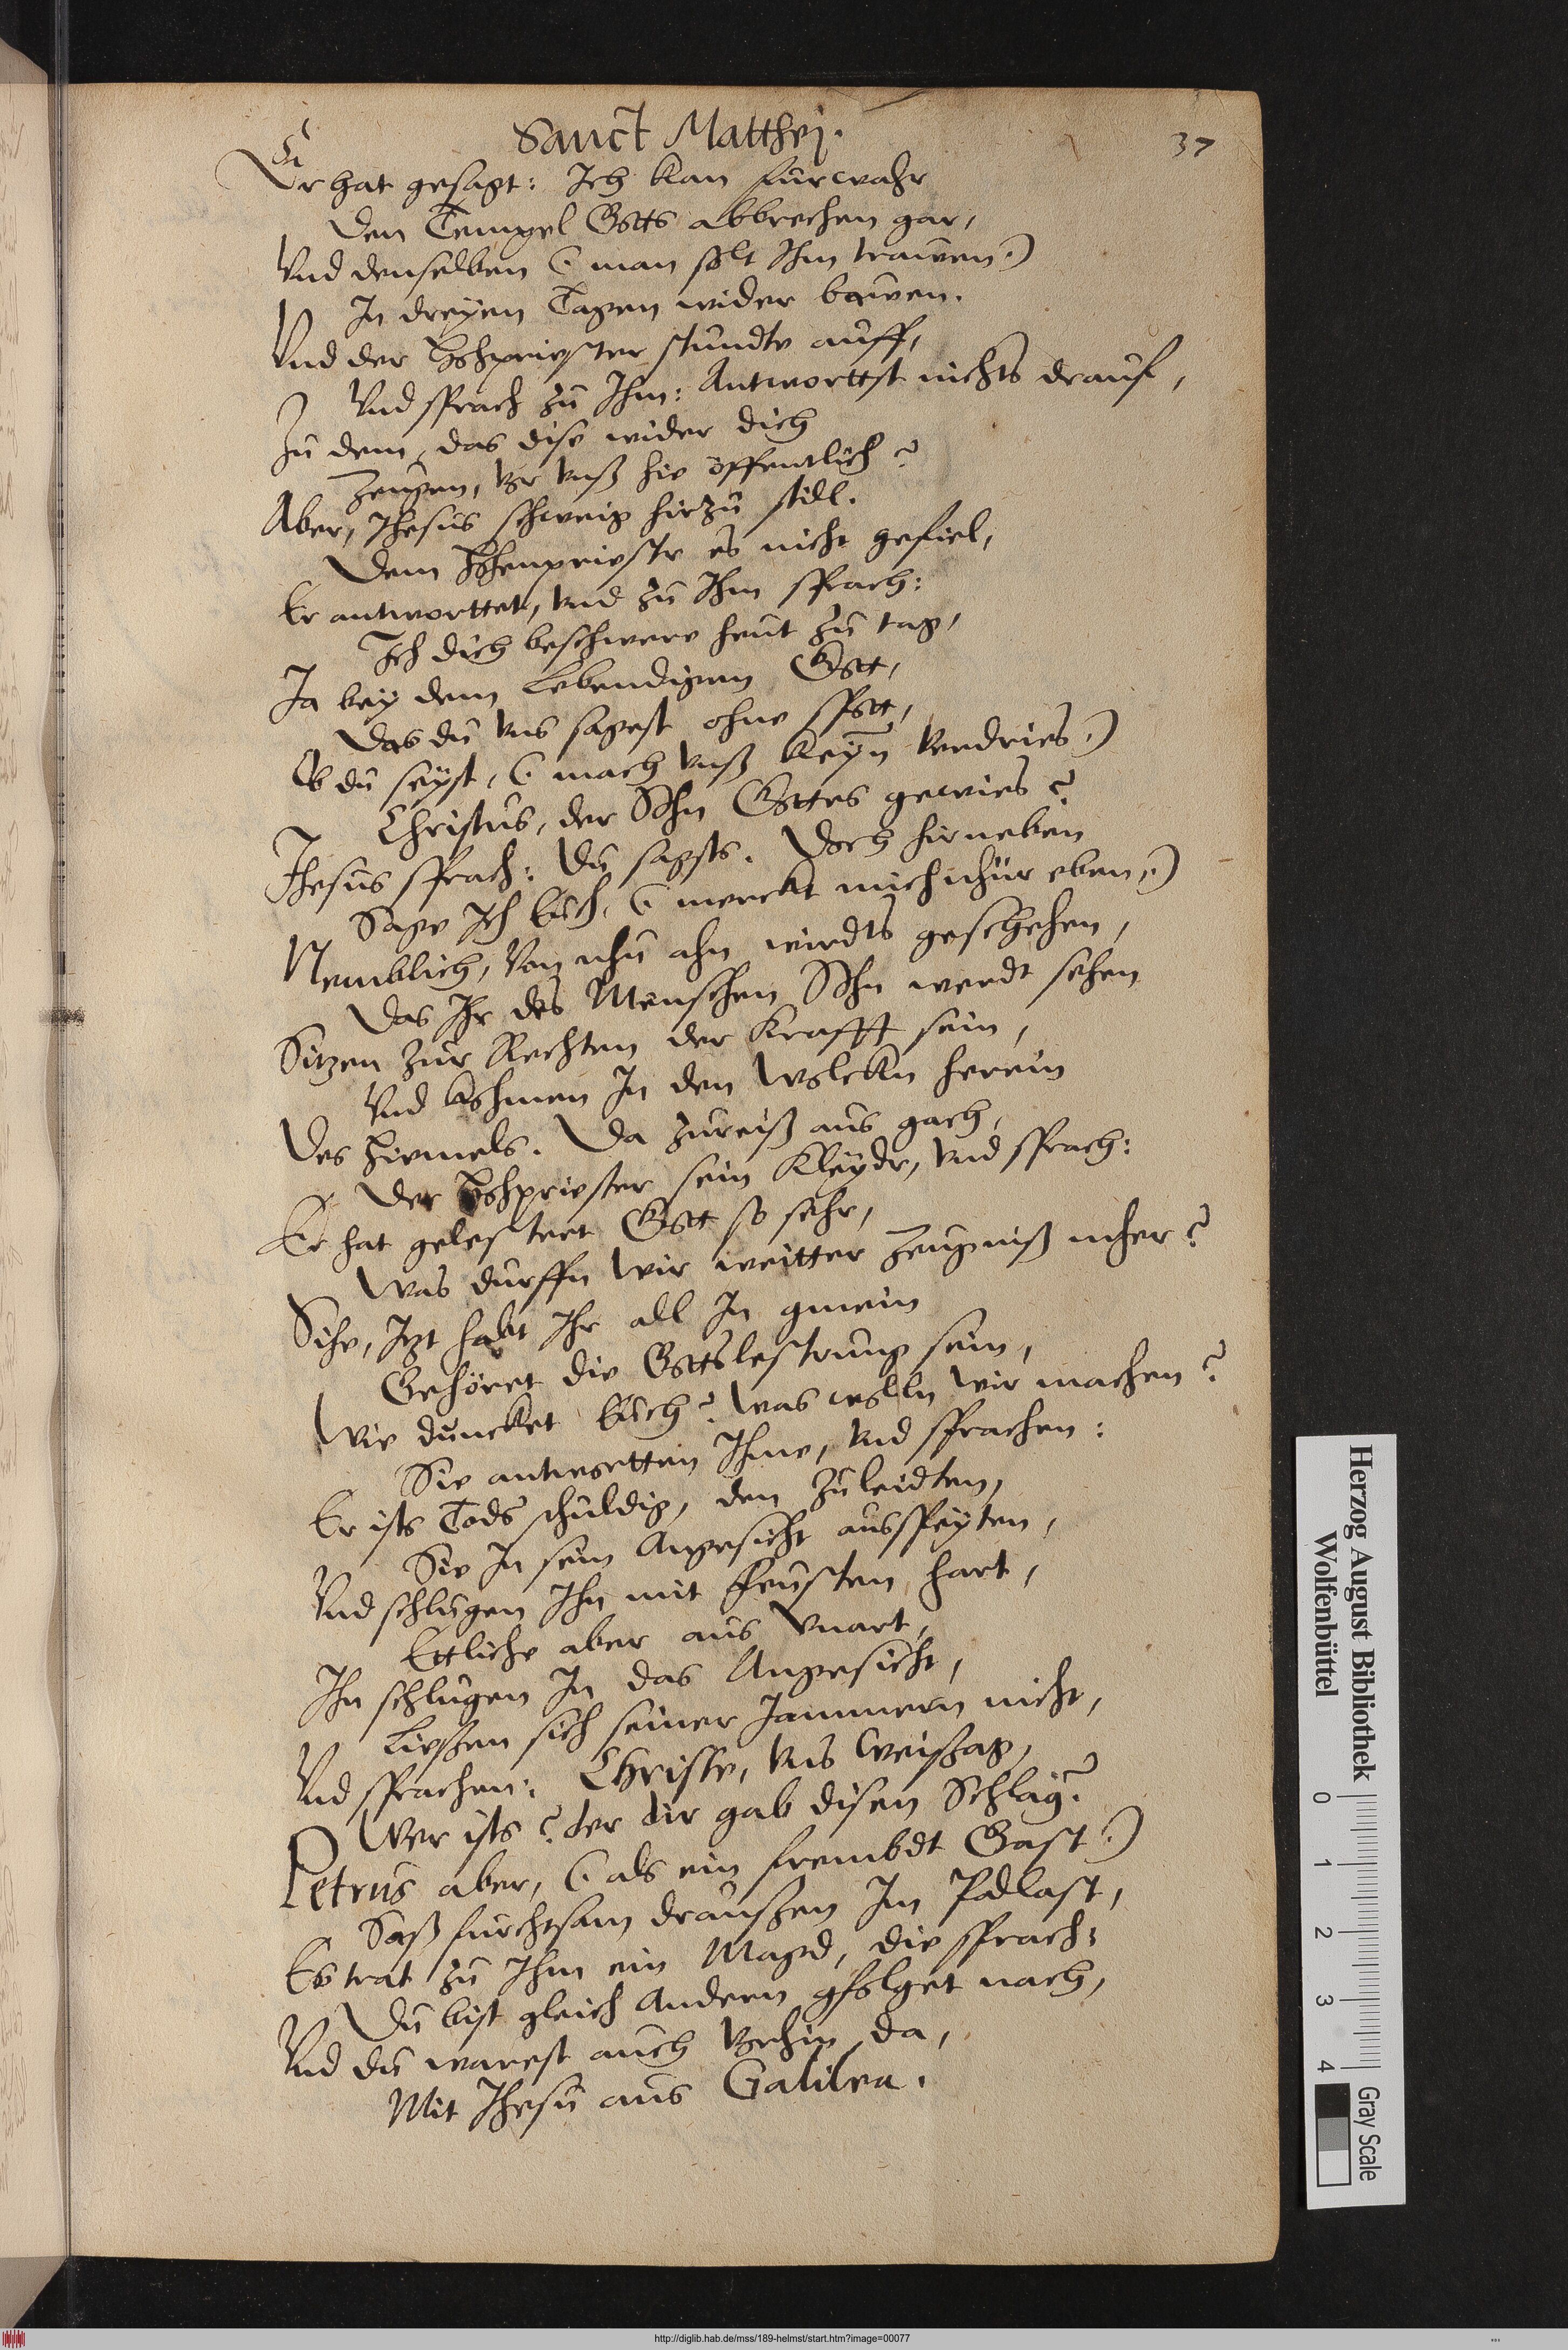 Sanct Matthej.
37
Er hat gesagt: Ich kan furwahr
Den Tempel Gotts abbrechen gar,
Vnd denselben (man solt Ihm trauwen.)
In dreyen Tagen wider bauwen.
Vnd der Hohpriester stundte auff,
Vnd sprach zu Ihm: Antworttst nichts drauf,
Zu dem, das dise wider dich
Zeugen, vor vnß hie öffentlich?
Aber, Jhesus schweig hirzu still.
Dem Hohenpriestr es nicht gefiel,
Er antworttet, vnd zu Ihm sprach:
Ich dich beschwere heut zu tag,
Ja bey dem Lebendigen Gott,
Das du vns sagest ohne spott,
Ob du seyst, (mach vnß keyn verdries.)
Christus, der Sohn Gottes gewies?
Jhesus sprach: Du sagsts. Doch hirneben
Sage Ich Euch, (merckt mich nhur eben.)
Nemblich, Von nhu ahn wirdts geschehen,
Das Ihr des Menschen Sohn werdt sehen
Sitzen zur Rechten der Krafft sein,
Vnd kohmen In den Wolckn herein
Des Himels. Da zureiß aus gach,
Der Hohpriester sein Kleydr, vnd sprach:
Er hat gelestert Gott so sehr,
Was durffn wir weitter Zeugniß mher?
Sihe, Itzt habt Ihr all In gmein
Gehöret die Gottslestrung sein,
Wie duncket Euch? was wolln wir machen?
Sie antwortten Ihme, vnd sprachen:
Er ists Tods schuldig, den zuleidten,
Sie In sein Angesicht ausspeyten,
Vnd schlugen Ihn mit feusten hart,
Ettliche aber aus vnart,
Ihn schlugen In das Angesicht,
Ließen sich seiner Jammern nicht,
Vnd sprachen: Christe, vns Weißag,
Wer ists? der dir gab disen Schlag?
Petrus aber, (als ein frembdt Gast.)
Saß furchtsam draußen Im Pallast,
Es trat zu Ihm ein Magd, die sprach:
Du bist gleich Andern gfolget nach,
Vnd du warest auch vorhin da,
Mit Jhesu aus Galilea.
Herzog August Bibliothek
Wolfenbüttel
0 1 2 3 4
Gray Scale
http://diglib.hab.de/mss/189-helmst/start.htm?image=00077